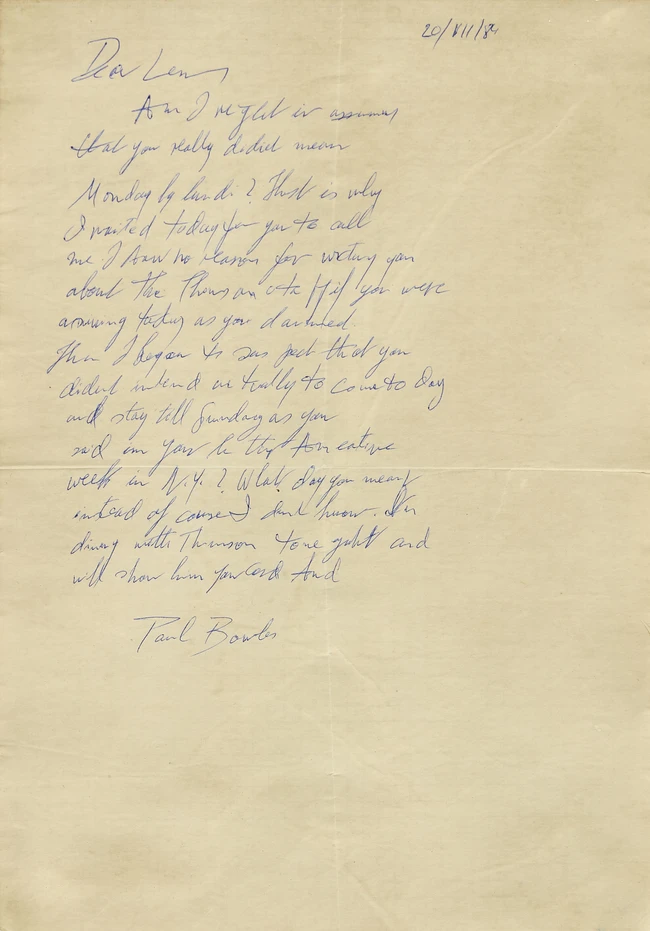 20/VII/84
Dear
Am I right in
that you really didn't mean
Monday by lundi? That is why
I waited today for you to call
me. I saw no reason for you
about the if you were
arriving today as you
Then I began to suspect that you
didn't intend actually to come today
and stay till Sunday as you
said in your
week in N.Y.? What day you meant
instead of course I don't know. I'm
dining with tonight and
will show him your card And
Paul Bowles